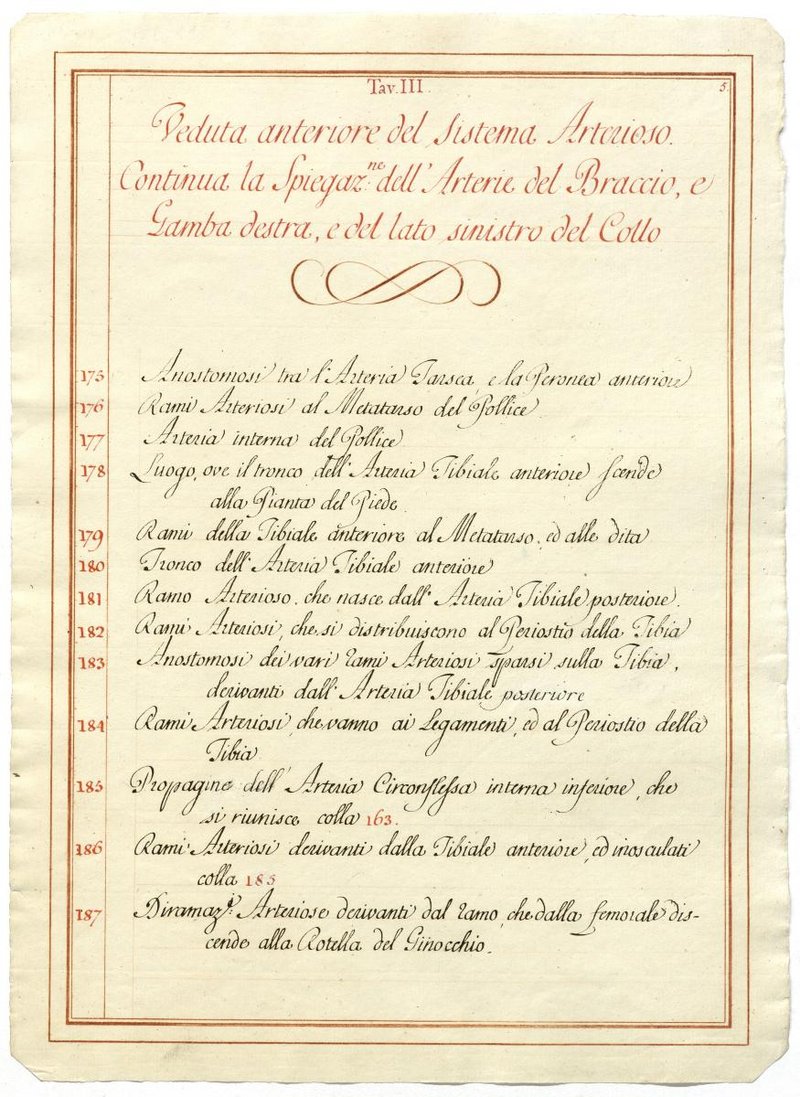 Tav. III.
5.
Veduta anteriore del Sistema Arterioso.
Continua la Spiegaz.ne dell'Arterie del Braccio, e
Gamba destra, e del lato sinistro del Collo
175 Anostomosi tra l'Arteria Tarsea, e la Peronea anteriore
176 Rami Arteriosi al Metatarso del Pollice
177 Arteria interna del Pollice
178 Luogo, ove il tronco dell'Arteria Tibiale anteriore scende
alla Pianta del Piede.
179 Rami della Tibiale anteriore al Metatarso, ed alle dita
180 Tronco dell'Arteria Tibiale anteriore
181 Ramo Arterioso, che nasce dall'Arteria Tibiale posteriore.
182 Rami Arteriosi, che si distribuiscono al Periostio della Tibia
183 Anostomosi dei vari rami Arteriosi sparsi sulla Tibia,
derivanti dall'Arteria Tibiale posteriore
184 Rami Arteriosi, che vanno ai Legamenti, ed al Periostio della
Tibia
185 Propagine dell'Arteria Circonflessa interna inferiore, che
si riunisce colla 163.
186 Rami Arteriosi derivanti dalla Tibiale anteriore, ed inosculati
colla 185
187 Diramaz.i Arteriose derivanti dal ramo, che dalla femorale dis-
cende alla Rotella del Ginocchio.